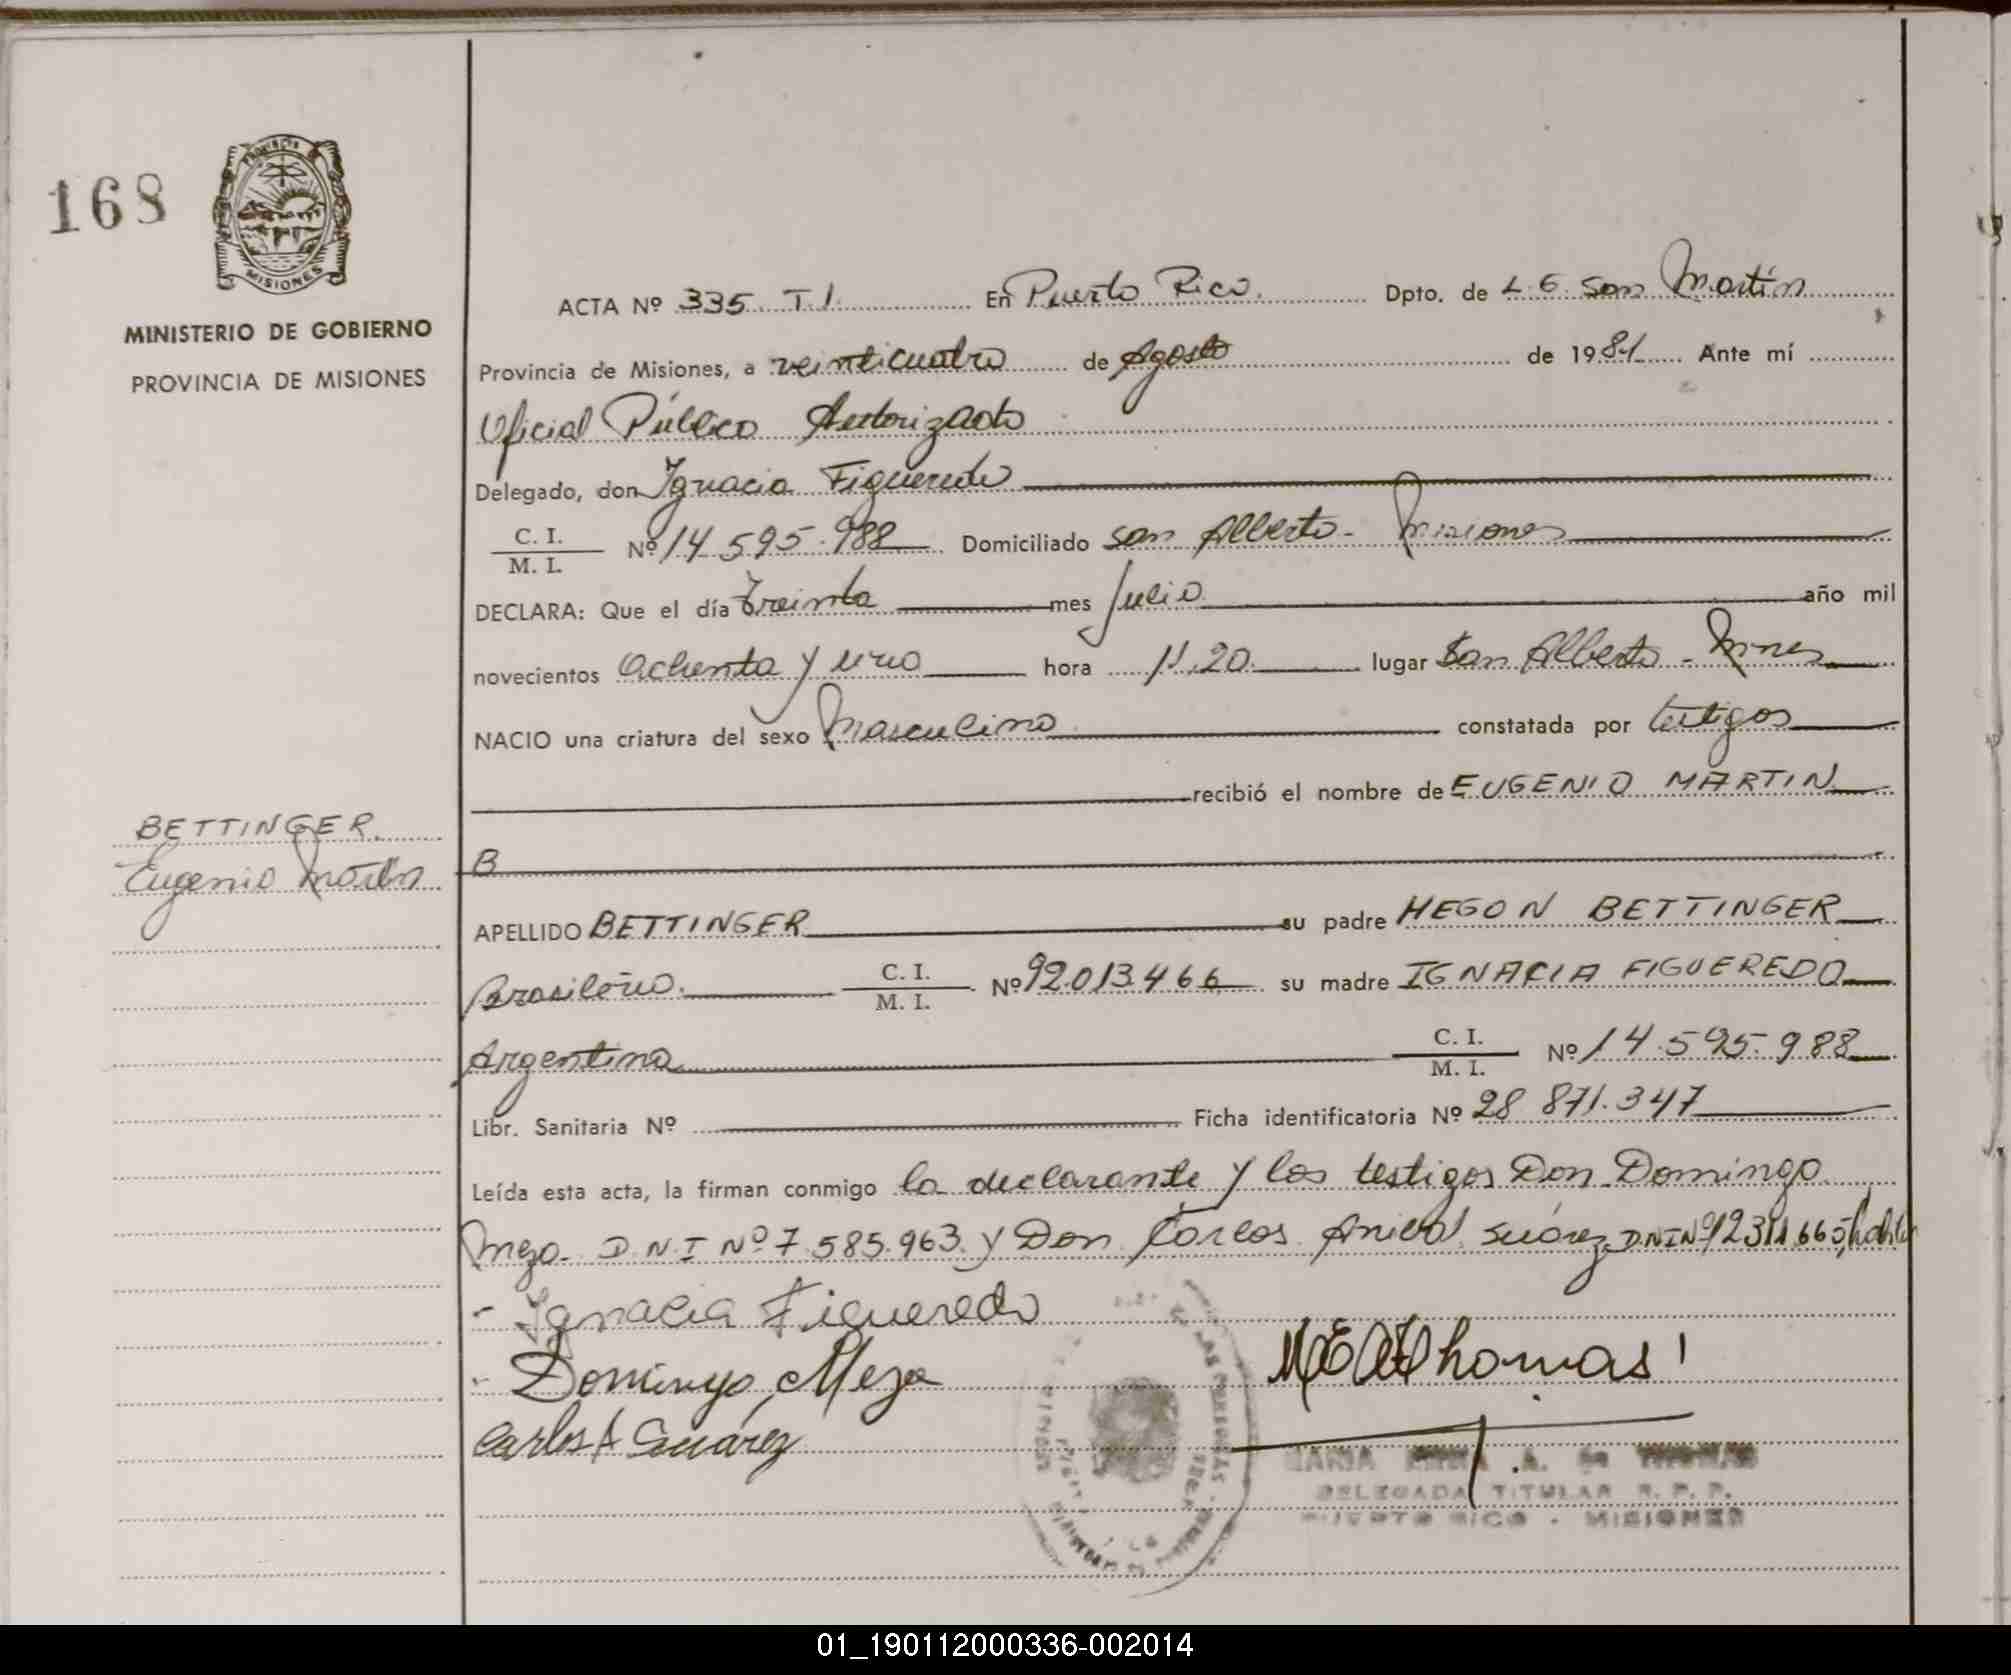 168
PROVINCIA
MISIONES
MINISTERIO DE GOBIERNO
PROVINCIA DE MISIONES
ACTA Nº 335 T I. En Puerto Rico. Dpto. de L G San Martín
Provincia de Misiones, a veinticuatro de Agosto de 1981 Ante mí
Oficial Público Autorizado
Delegado, don Ignacia Figueredo
C. I.
M. I. Nº 14.595.988 Domiciliado San Alberto - Misiones
DECLARA: Que el día treinta mes Julio año mil
novecientos Ochenta y uno hora 11.20 lugar San Alberto - Mnes
NACIO una criatura del sexo Masculino constatada por testigos
recibió el nombre de EUGENIO MARTIN
BETTINGER.
Eugenio Martin
B
APELLIDO BETTINGER su padre HEGON BETTINGER
Brasileño. C. I.
M. I. Nº 92.013.466 su madre IGNACIA FIGUEREDO
Argentina C. I.
M. I. Nº 14.595.988
Libr. Sanitaria Nº Ficha identificatoria Nº 28 871.347
Leída esta acta, la firman conmigo la declarante y los testigos Don Domingo
Meza - D.N.I Nº 7.585.963 y Don Carlos Anibal Suárez D.N.I Nº
Ignacia Figueredo
Domingo Meza
Carlos A Suárez
MEAThomas
MARIA A. de THOMAS
DELEGADA TITULAR R. P. P.
PUERTO RICO - MISIONES
01_190112000336-002014